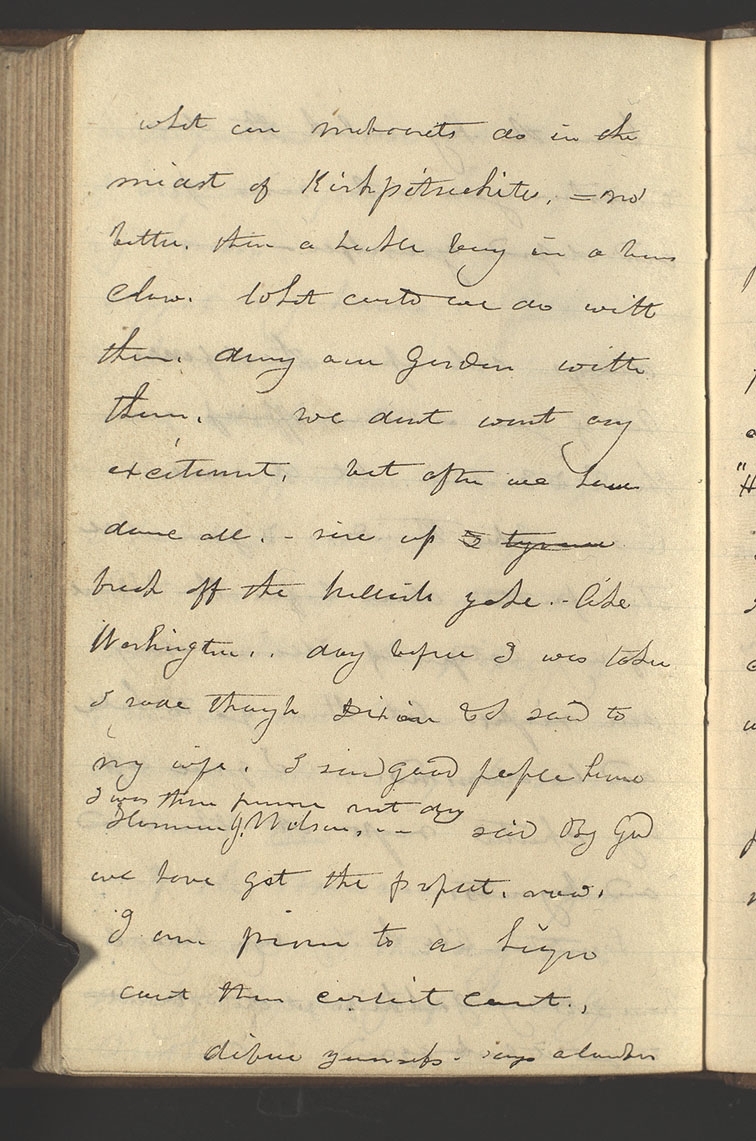 what can mobocrats do in the
midst of Kirkpatrickites. = no
better. then a hucke bug in a hens
claw. What can we do with
them. dung our Garden with
them. we dont want any
excitement. but after we have
done all. - rise up &
break off the hellish yoke. - like
Washington.. day before I was taken
I rode though Dixon & I said to
my wife. I said good people here
I was there prisoner next day
Harmon J. Wilson. - - said By God
we have got the prophet. now.
I am prisoner to a higher
court then circuit court.,
defend yourselfs. says